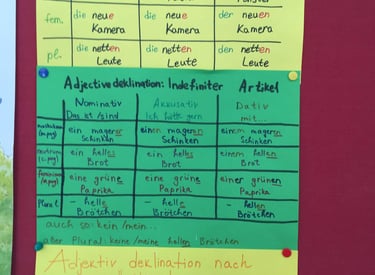 fem. die neue Kamera die neue Kamera der neuen Kamera
pl. die netten Leute die netten Leute den netten Leute
Adjectivdeklination: Indefiniter Artikel
Nominativ Das ist/sind Akkusativ Ich hätte gern Dativ mit...
ein magerer Schinken einen mageren Schinken einem mageren Schinken
ein helles Brot ein helles Brot einem hellen Brot
eine grüne Paprika eine grüne Paprika einer grünen Paprika
Plural - helle Brötchen - helle Brötchen - hellen Brötchen
auch so: kein/mein...
aber Plural keine/meine hellen Brötchen
Adjektiv deklination nach